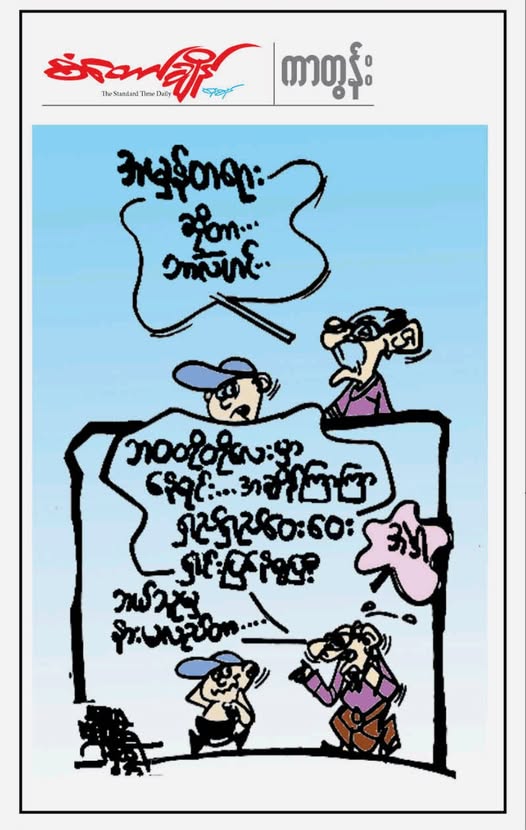 စံတော်ချိန်
The Standard Time Daily
ကာတွန်း
အမှန်တရား
ဆိုတာ...
ဘာလဲဟင်..
ဘဝတိုတိုလေးမှာ
နေရင်း.... အချိန်ကြာကြာ
ရှည်ရှည်ဝေးဝေး
ရှင်းပြနေရပြီး
ဘယ်သူမှ
နားမလည်တာ.....